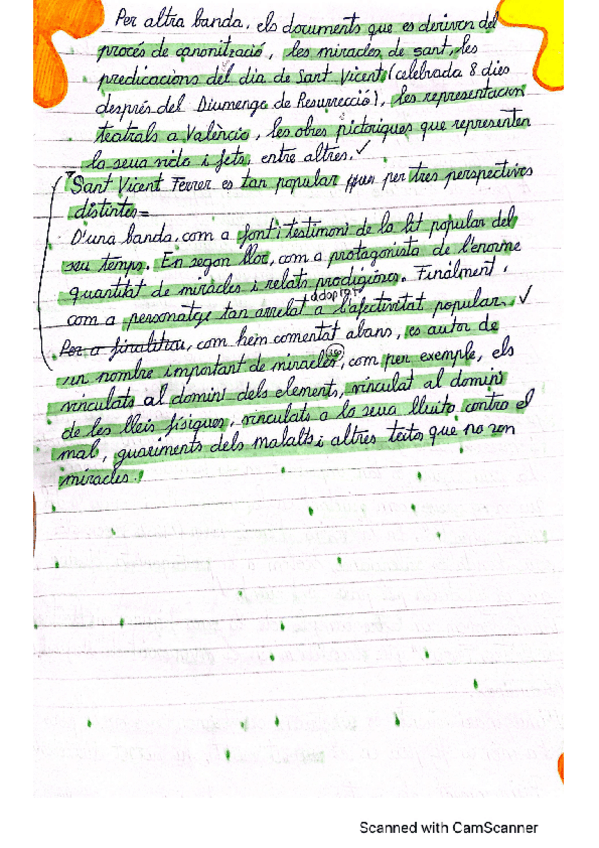 Per altra banda, els documents que es deriven del
procés de canonització, les miracles de sant, les
predicacions del dia de Sant Vicent (celebrada 8 dies
després del Diumenge de Resurrecció), les representacions
teatrals a València, les obres pictòriques que representen
la seua vida i fets, entre altres.
Sant Vicent Ferrer es tan popular per tres perspectives
distintes=
D'una banda, com a font i testimoni de la lit popular del
seu temps. En segon lloc, com a protagonista de l'enorme
quantitat de miracles i relats prodigiosos. Finalment,
adoptat
com a personatge tan arrelat a l'afectivitat popular.
Per a finalitzar, com hem comentat abans, es autor de
un nombre important de miracles, com per exemple, els
vinculats al domini dels elements, vinculat al domini
de les lleis físiques, vinculats a la seua lluita contra el
mal, guariments dels malalts i altres textos que no son
miracles.
Scanned with CamScanner